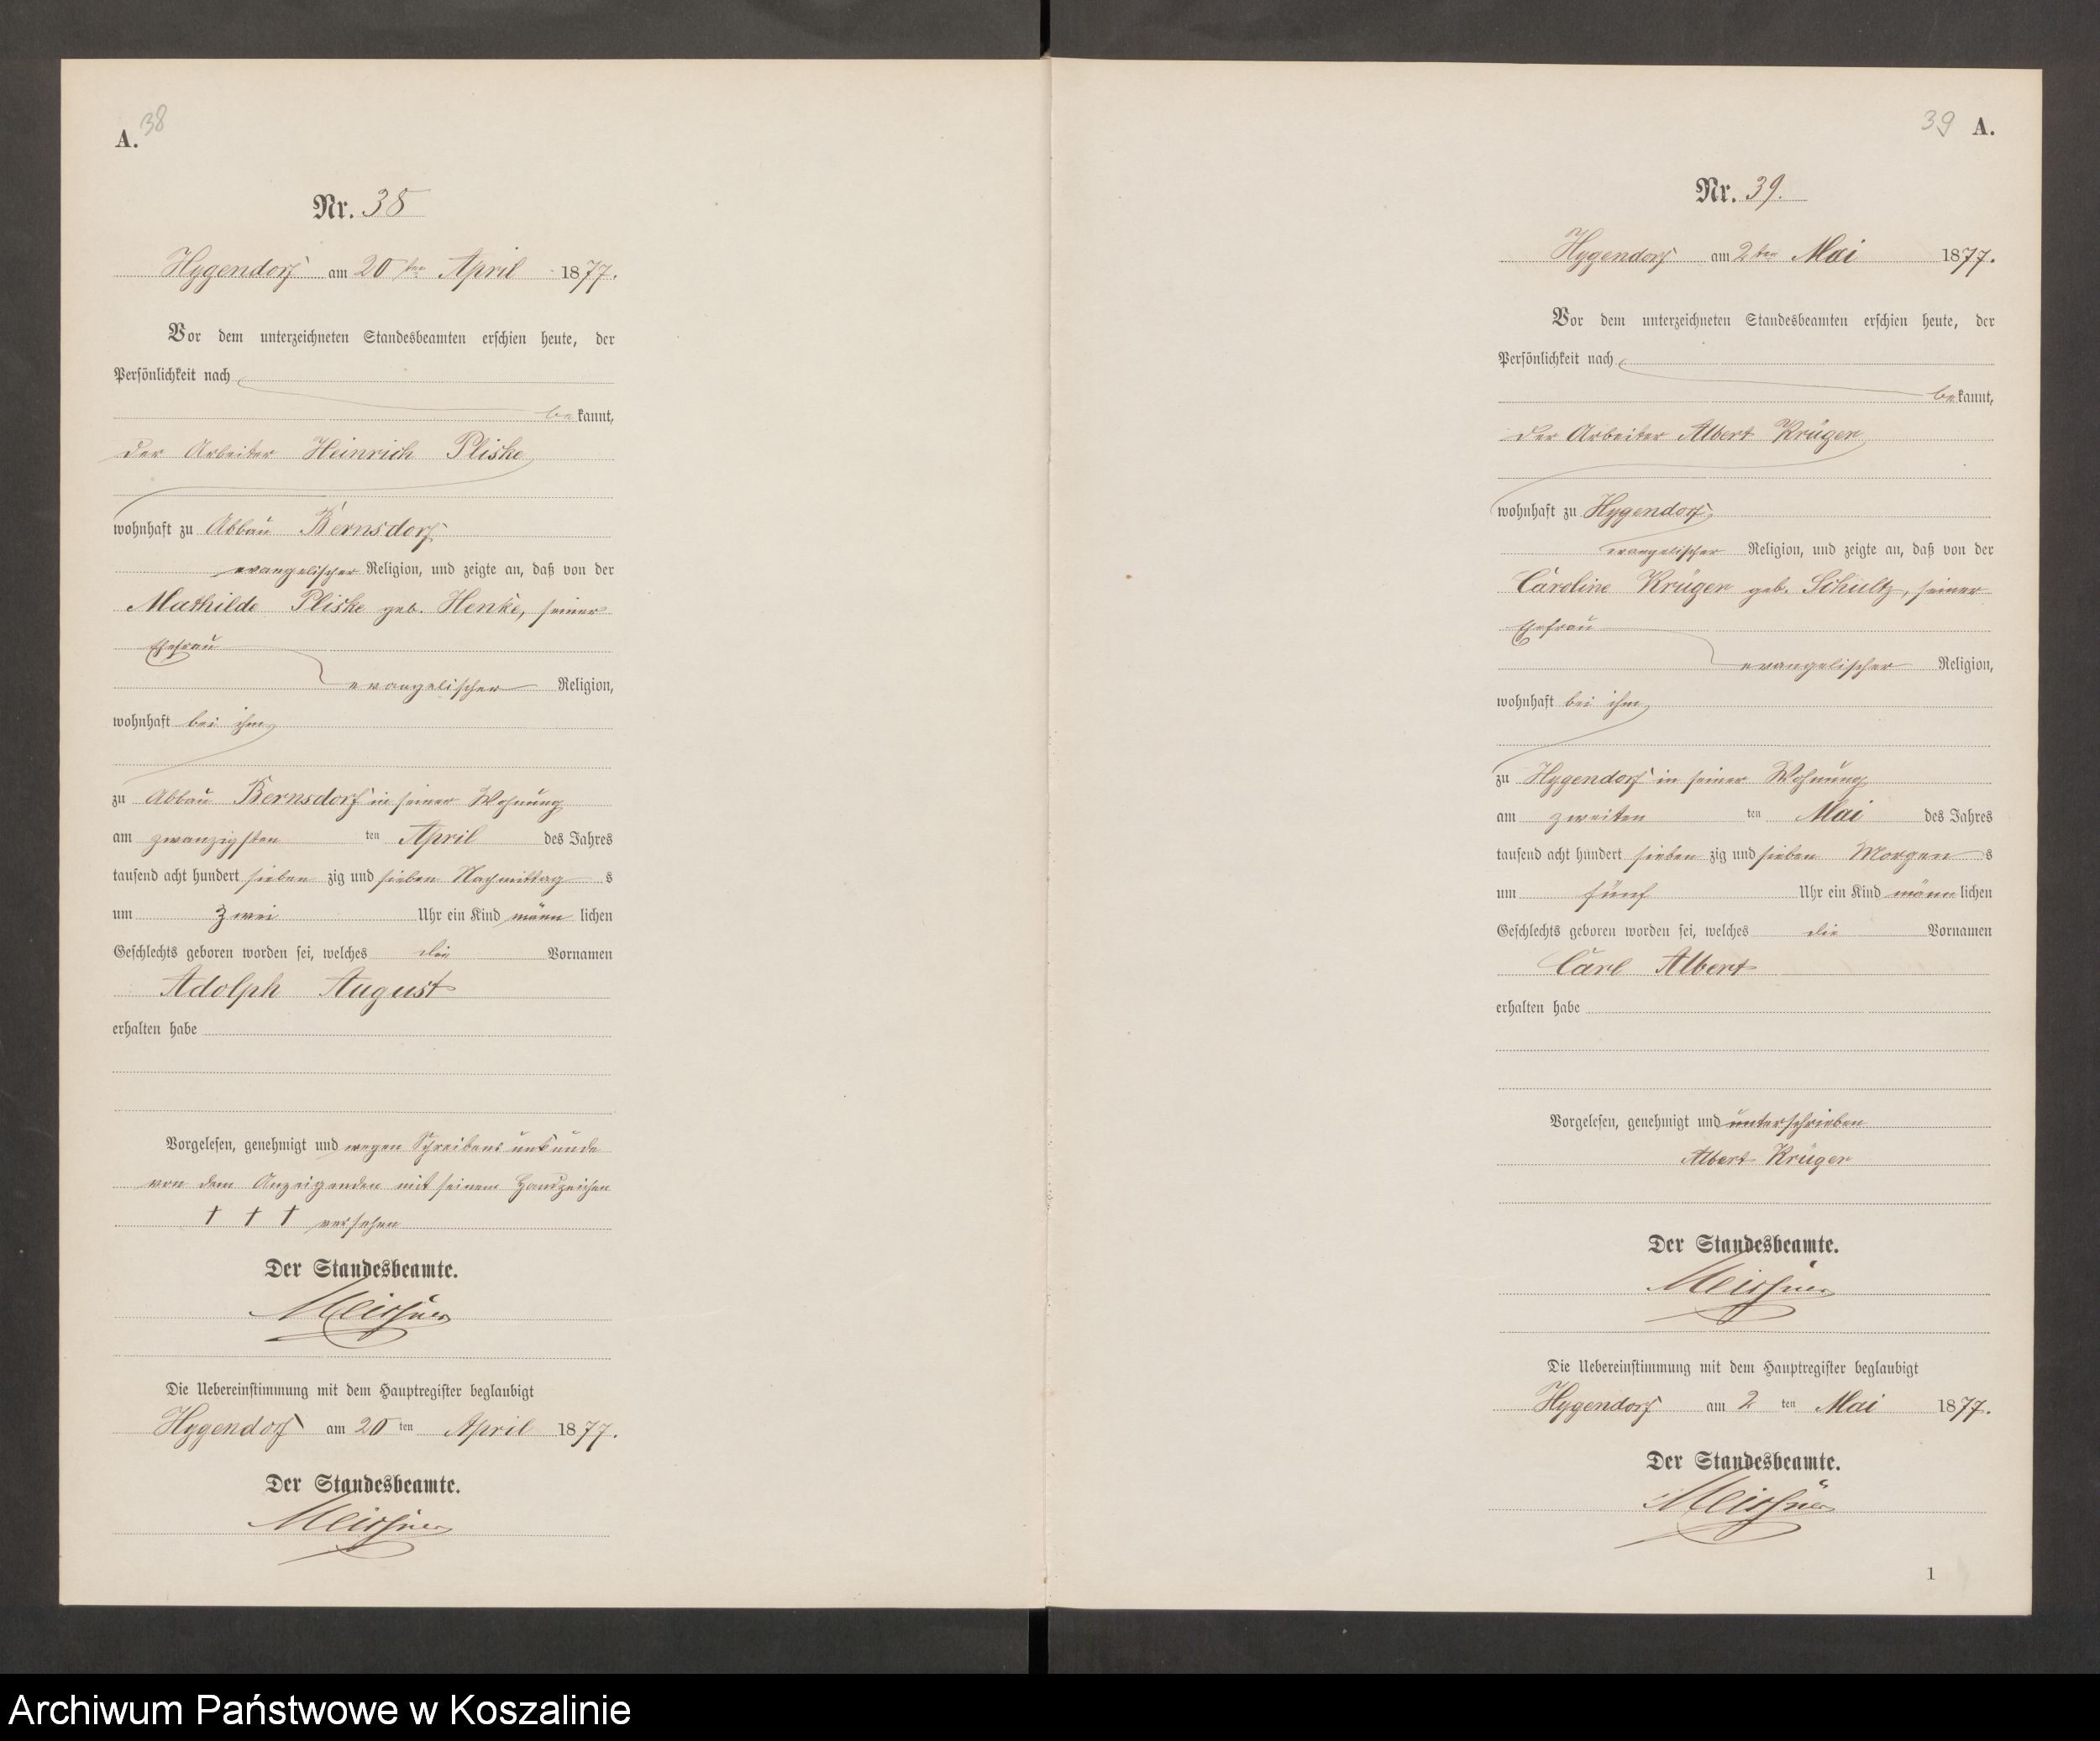 38
A.
Nr. 38
Hygendorf am 20 ten April 1877.
Vor dem unterzeichneten Standesbeamten erschien heute, der
Persönlichkeit nach
be kannt,
der Arbeiter Heinrich Pliske
wohnhaft zu Abbau Bernsdorf
evangelischer Religion, und zeigte an, daß von der
Mathilde Pliske geb. Henke, seiner
Ehefrau
evangelischer Religion,
wohnhaft bei ihm
zu Abbau Bernsdorf in seiner Wohnung
am zwanzigsten ten April des Jahres
tausend acht hundert sieben zig und sieben Nachmittag s
um zwei Uhr ein Kind männ lichen
Geschlechts geboren worden sei, welches die Vornamen
Adolph August
erhalten habe
Vorgelesen, genehmigt und wegen Schreibens unkunde
von dem Anzeigenden mit seinem Handzeichen
† † † versehen
Der Standesbeamte.
Meissner
Die Uebereinstimmung mit dem Hauptregister beglaubigt
Hygendorf am 20 ten April 1877.
Der Standesbeamte.
Meissner
39 A.
Nr. 39.
Hygendorf am 2 ten Mai 1877.
Vor dem unterzeichneten Standesbeamten erschien heute, der
Persönlichkeit nach
be kannt,
der Arbeiter Albert Krüger
wohnhaft zu Hygendorf
evangelischer Religion, und zeigte an, daß von der
Caroline Krüger geb. Schultz, seiner
Ehefrau
evangelischer Religion,
wohnhaft bei ihm
zu Hygendorf in seiner Wohnung
am zweiten ten Mai des Jahres
tausend acht hundert sieben zig und sieben Morgen s
um fünf Uhr ein Kind männ lichen
Geschlechts geboren worden sei, welches die Vornamen
Carl Albert
erhalten habe
Vorgelesen, genehmigt und unterschrieben
Albert Krüger
Der Standesbeamte.
Meissner
Die Uebereinstimmung mit dem Hauptregister beglaubigt
Hygendorf am 2 ten Mai 1877.
Der Standesbeamte.
Meissner
1
Archiwum Państwowe w Koszalinie